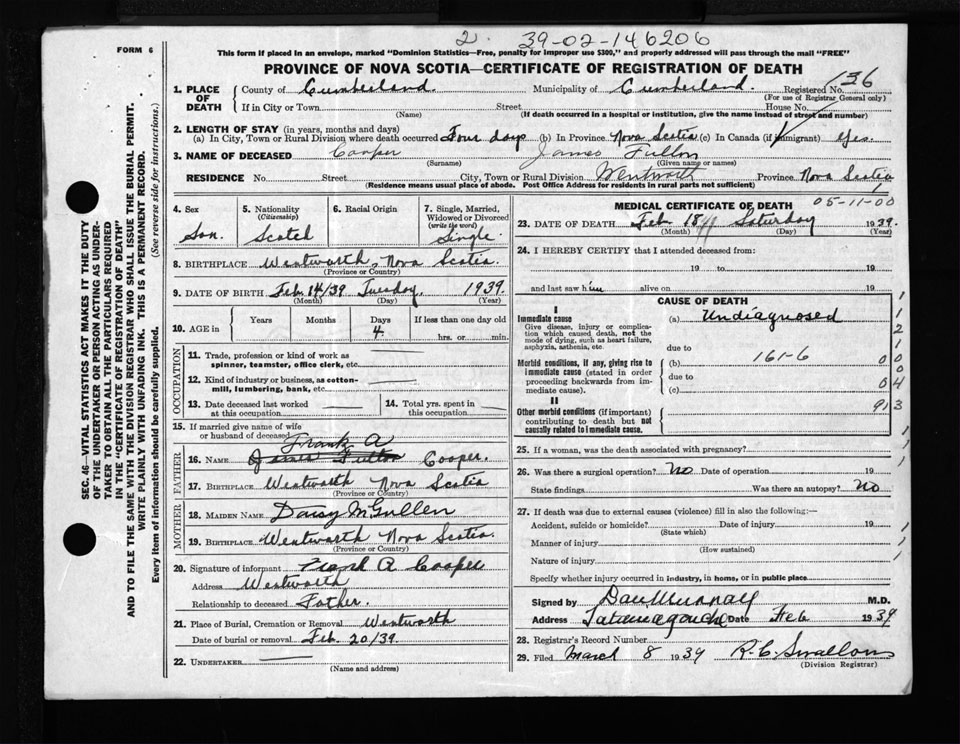 2. 39-02-146206
FORM 6
This form if placed in an envelope, marked "Dominion Statistics—Free, penalty for improper use $300," and properly addressed will pass through the mail "FREE"
PROVINCE OF NOVA SCOTIA—CERTIFICATE OF REGISTRATION OF DEATH
SEC. 46—VITAL STATISTICS ACT MAKES IT THE DUTY
OF THE UNDERTAKER OR PERSON ACTING AS UNDER-
TAKER TO OBTAIN ALL THE PARTICULARS REQUIRED
IN THE "CERTIFICATE OF REGISTRATION OF DEATH"
AND TO FILE THE SAME WITH THE DIVISION REGISTRAR WHO SHALL ISSUE THE BURIAL PERMIT.
WRITE PLAINLY WITH UNFADING INK. THIS IS A PERMANENT RECORD.
Every item of information should be carefully supplied. (See reverse side for instructions.)
1. PLACE OF DEATH
County of Cumberland. Municipality of Cumberland. Registered No. 136
(For use of Registrar General only)
If in City or Town Street House No.
(Name) (If death occurred in a hospital or institution, give the name instead of street and number)
2. LENGTH OF STAY (in years, months and days)
(a) In City, Town or Rural Division where death occurred Four days (b) In Province Nova Scotia (c) In Canada (if immigrant) yes.
3. NAME OF DECEASED Cooper James Fulton
(Surname) (Given name or names)
RESIDENCE No. Street City, Town or Rural Division Wentworth Province Nova Scotia
(Residence means usual place of abode. Post Office Address for residents in rural parts not sufficient)
4. Sex Son.
5. Nationality (Citizenship) Scotch
6. Racial Origin
7. Single, Married, Widowed or Divorced (write the word) Single
8. BIRTHPLACE Wentworth, Nova Scotia.
(Province or Country)
9. DATE OF BIRTH Feb. 14/39 Tuesday, 1939.
(Month) (Day) (Year)
10. AGE in Years Months Days 4 If less than one day old
hrs. or min.
OCCUPATION
11. Trade, profession or kind of work as
spinner, teamster, office clerk, etc.
12. Kind of industry or business, as cotton-
mill, lumbering, bank, etc.
13. Date deceased last worked
at this occupation
14. Total yrs. spent in
this occupation
15. If married give name of wife
or husband of deceased
FATHER
Frank A
16. NAME James Fulton Cooper.
17. BIRTHPLACE Wentworth Nova Scotia
(Province or Country)
MOTHER
18. MAIDEN NAME Daisy McGullen
19. BIRTHPLACE Wentworth Nova Scotia.
(Province or Country)
20. Signature of informant Frank A Cooper
Address Wentworth
Relationship to deceased Father.
21. Place of Burial, Cremation or Removal Wentworth
Date of burial or removal Feb. 20/39.
22. UNDERTAKER
(Name and address)
MEDICAL CERTIFICATE OF DEATH 05-11-00
23. DATE OF DEATH Feb 18 Saturday 1939.
(Month) (Day) (Year)
24. I HEREBY CERTIFY that I attended deceased from:
19 to 19
and last saw him alive on 19
CAUSE OF DEATH
I
Immediate cause
Give disease, injury or complica-
tion which caused death, not the
mode of dying, such as heart failure,
asphyxia, asthenia, etc.
(a) Undiagnosed
due to
Morbid conditions, if any, giving rise to
immediate cause (stated in order
proceeding backwards from im-
mediate cause).
(b) 161-6
due to
(c)
II
Other morbid conditions (if important)
contributing to death but not
causally related to immediate cause.
25. If a woman, was the death associated with pregnancy?
26. Was there a surgical operation? No Date of operation 19
State findings Was there an autopsy? No
27. If death was due to external causes (violence) fill in also the following:—
Accident, suicide or homicide? Date of injury 19
(State which)
Manner of injury
(How sustained)
Nature of injury
Specify whether injury occurred in industry, in home, or in public place
Signed by M.D.
Address Tatamagouche Date Feb 1939
28. Registrar's Record Number
29. Filed March 8 1939 R. C. Swallow
(Division Registrar)